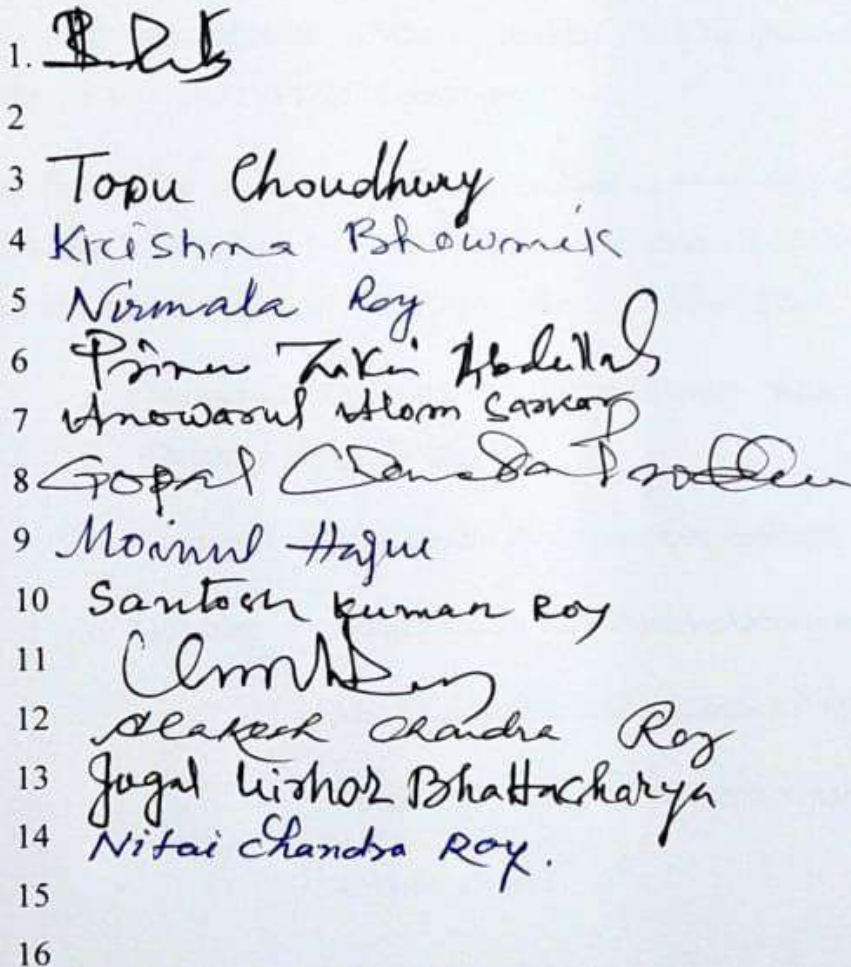 1.
2
3 Topu Choudhury
4 Krishna Bhowmik
5 Nirmala Roy
6 Prince Zakir Abdullah
7 Anowarul Alom Sarkar
8 Gopal Chandra
9 Moinul Haque
10 Santosh Kumar Roy
11
12 Alakesh Chandra Roy
13 Jugal Kishor Bhattacharya
14 Nitai Chandra Roy.
15
16